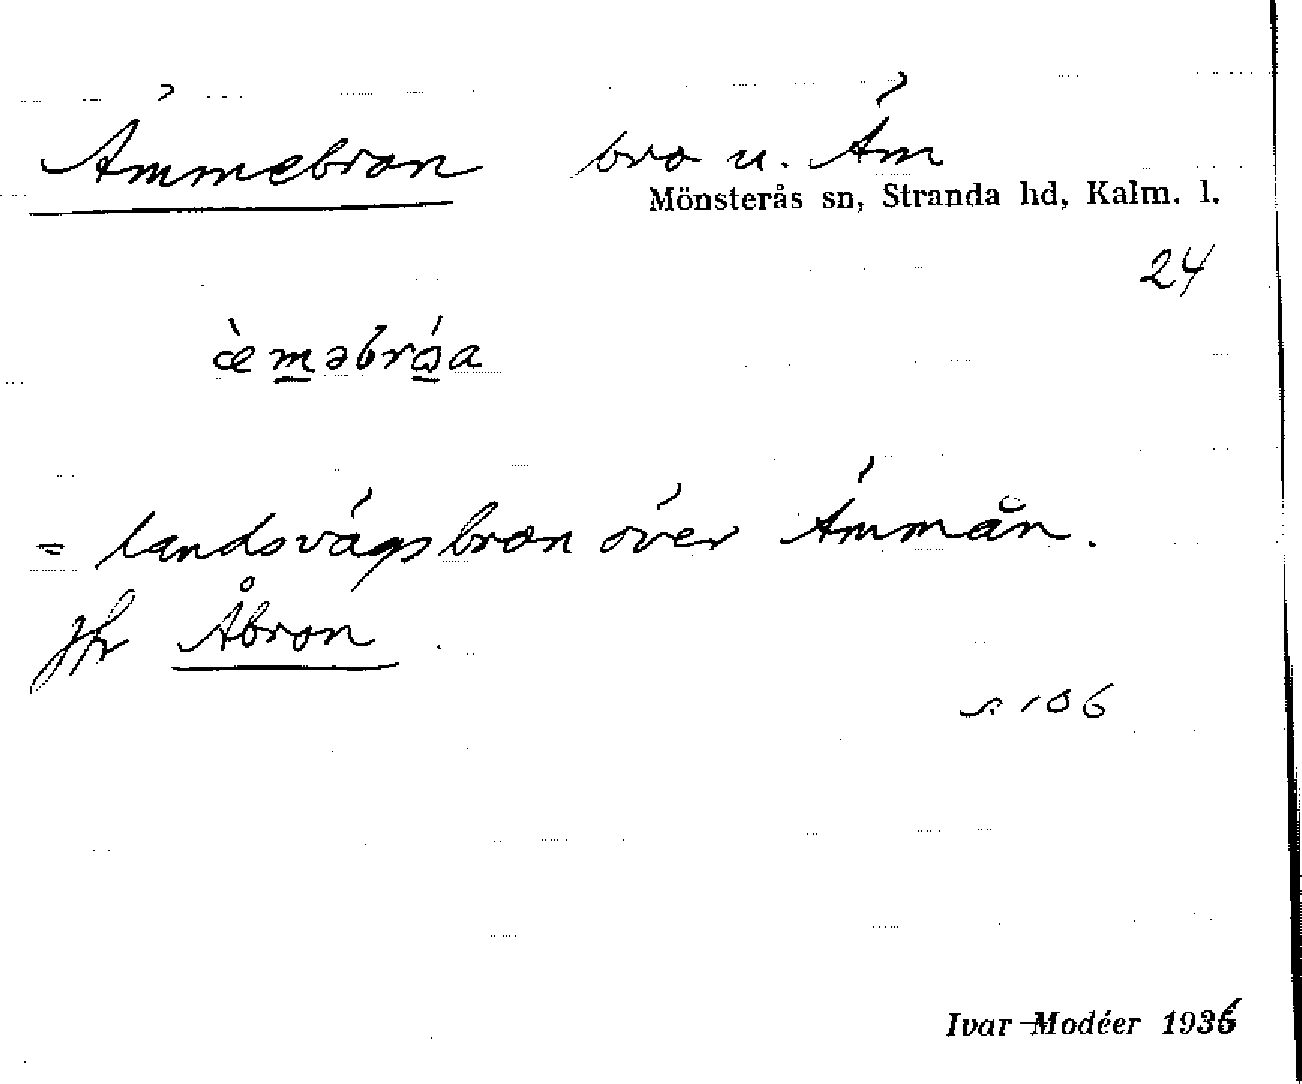 Ämmebron bro u. Äm
Mönsterås sn, Stranda hd, Kalm. l.
24
= landsvägsbron över Ämmån.
Jfr Åbron
s. 106
Ivar Modéer 1936